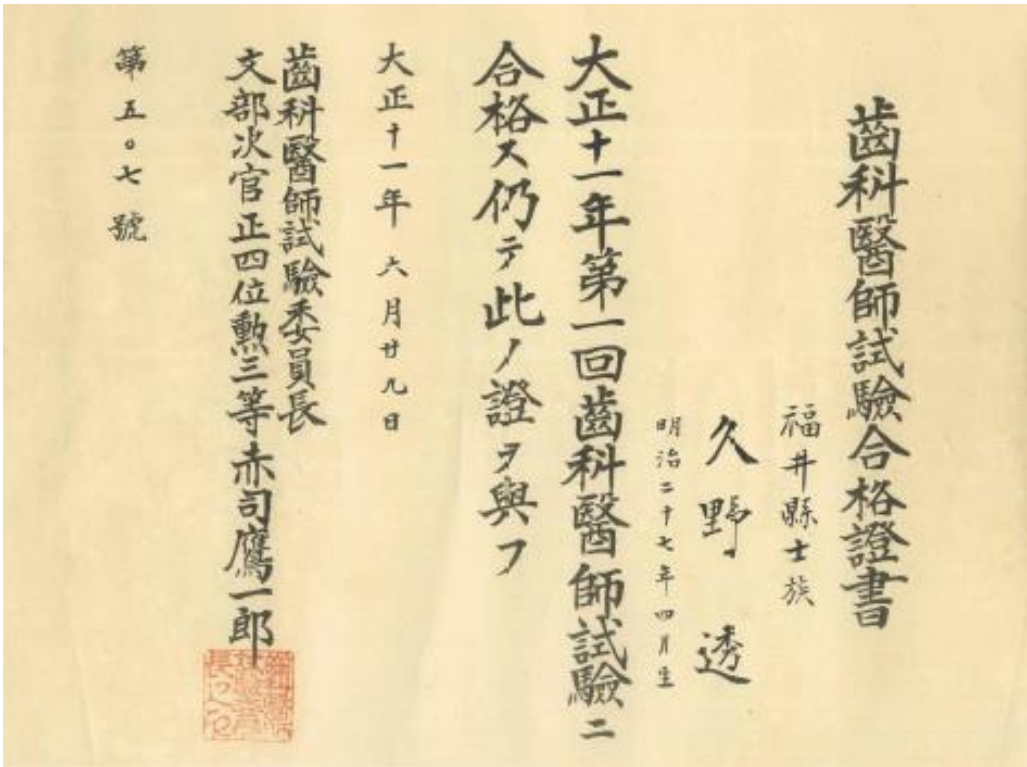 齒科醫師試驗合格證書
福井縣士族
久野透
明治二十七年四月生
大正十一年第一回齒科醫師試驗ニ
合格ス仍テ此ノ證ヲ與フ
大正十一年六月廿九日
齒科醫師試驗委員長
文部次官正四位勲三等赤司鷹一郎
第五〇七號